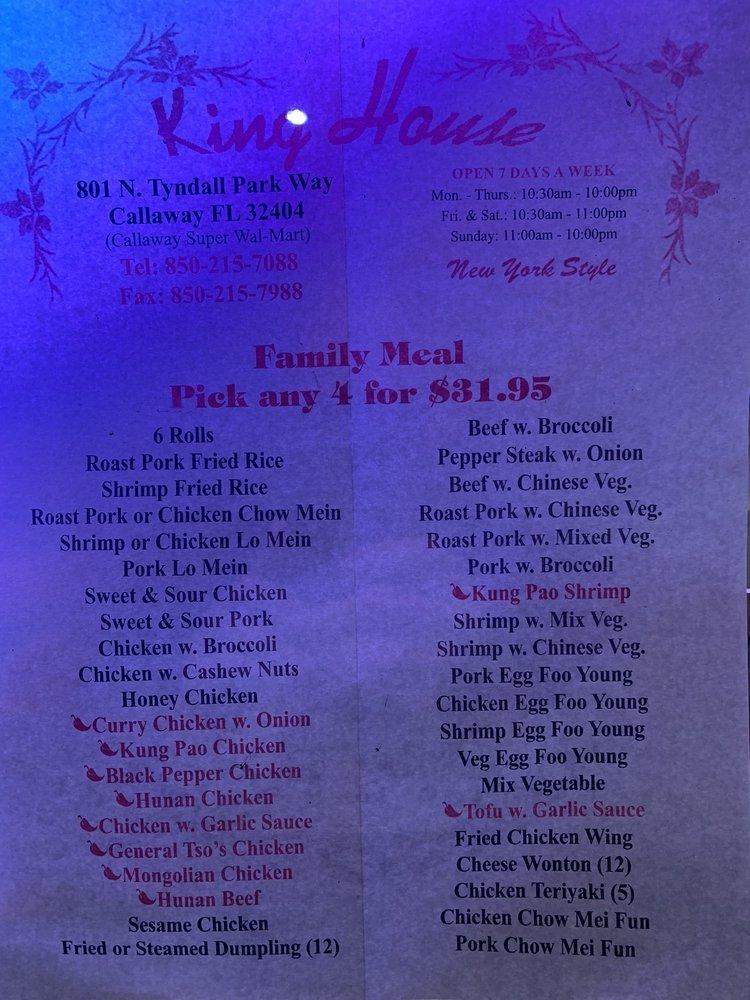 King House
801 N. Tyndall Park Way
Callaway FL 32404
(Callaway Super Wal-Mart)
Tel: 850-215-7088
Fax: 850-215-7988
OPEN 7 DAYS A WEEK
Mon. - Thurs.: 10:30am - 10:00pm
Fri. & Sat.: 10:30am - 11:00pm
Sunday: 11:00am - 10:00pm
New York Style
Family Meal
Pick any 4 for $31.95
6 Rolls
Roast Pork Fried Rice
Shrimp Fried Rice
Roast Pork or Chicken Chow Mein
Shrimp or Chicken Lo Mein
Pork Lo Mein
Sweet & Sour Chicken
Sweet & Sour Pork
Chicken w. Broccoli
Chicken w. Cashew Nuts
Honey Chicken
Curry Chicken w. Onion
Kung Pao Chicken
Black Pepper Chicken
Hunan Chicken
Chicken w. Garlic Sauce
General Tso's Chicken
Mongolian Chicken
Hunan Beef
Sesame Chicken
Fried or Steamed Dumpling (12)
Beef w. Broccoli
Pepper Steak w. Onion
Beef w. Chinese Veg.
Roast Pork w. Chinese Veg.
Roast Pork w. Mixed Veg.
Pork w. Broccoli
Kung Pao Shrimp
Shrimp w. Mix Veg.
Shrimp w. Chinese Veg.
Pork Egg Foo Young
Chicken Egg Foo Young
Shrimp Egg Foo Young
Veg Egg Foo Young
Mix Vegetable
Tofu w. Garlic Sauce
Fried Chicken Wing
Cheese Wonton (12)
Chicken Teriyaki (5)
Chicken Chow Mei Fun
Pork Chow Mei Fun